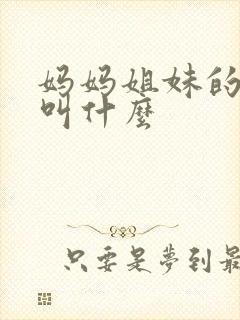 妈妈姐妹的
叫什麼
只要是夢到最